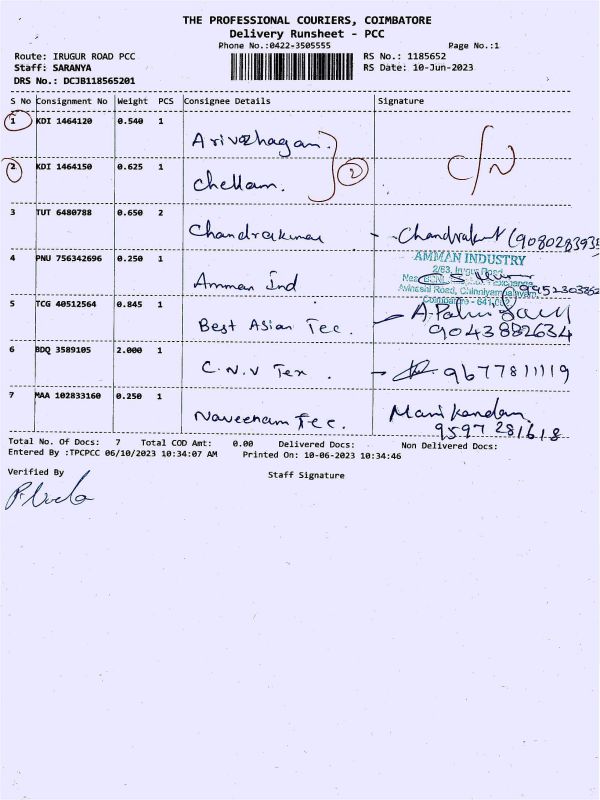 THE PROFESSIONAL COURIERS, COIMBATORE
Delivery Runsheet - PCC
Phone No.:0422-3505555 Page No.:1
Route: IRUGUR ROAD PCC RS No.: 1185652
Staff: SARANYA RS Date: 10-Jun-2023
DRS No.: DCJB118565201
S No Consignment No Weight PCS Consignee Details Signature
1 KDI 1464120 0.540 1 Arivazhagan. C/N
2 KDI 1464150 0.625 1 Chellam. 2
3 TUT 6480788 0.650 2 Chandrakumar
4 PNU 756342696 0.250 1 Amman Ind AMMAN INDUSTRY
2/63, Irugur Road
Avinashi Road, Chinniyampalayam,
Coimbatore - 641
5 TCG 40512564 0.845 1 Best Asian Tec. 9043882634
6 BDQ 3589105 2.000 1 C.N.V Tex. - 9677811119
7 MAA 102833160 0.250 1 Naveenam Tec. Manikandan
9597 281618
Total No. Of Docs: 7 Total COD Amt: 0.00 Delivered Docs: Non Delivered Docs:
Entered By :TPCPCC 06/10/2023 10:34:07 AM Printed On: 10-06-2023 10:34:46
Verified By Staff Signature